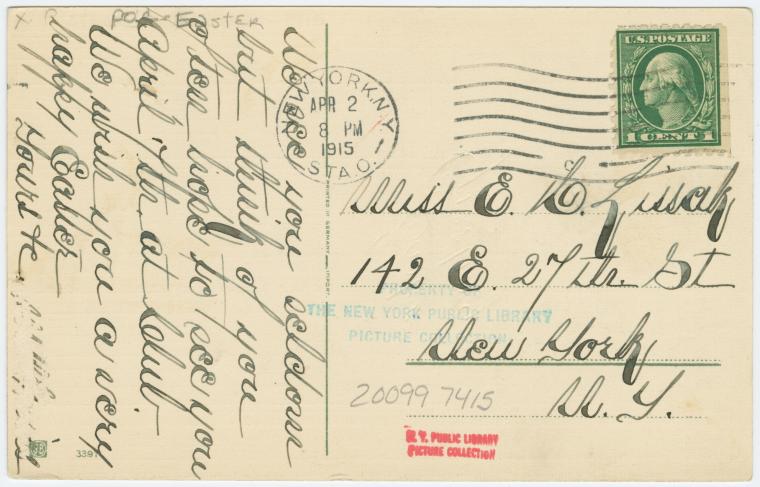 POC - Easter
We see you seldom
but think of you
often hope to see you
April 7th. at Club
We wish you a very
happy Easter
Yours te
NEW YORK, N.Y.
APR 2
8 PM
1915
STA. O.
U.S. POSTAGE
1 CENT 1
Miss E. D. Lissak
142 E. 27th. St
New York
N. Y.
PROPERTY OF
THE NEW YORK PUBLIC LIBRARY
PICTURE COLLECTION
20099 7415
N. Y. PUBLIC LIBRARY
PICTURE COLLECTION
PRINTED IN GERMANY
3397